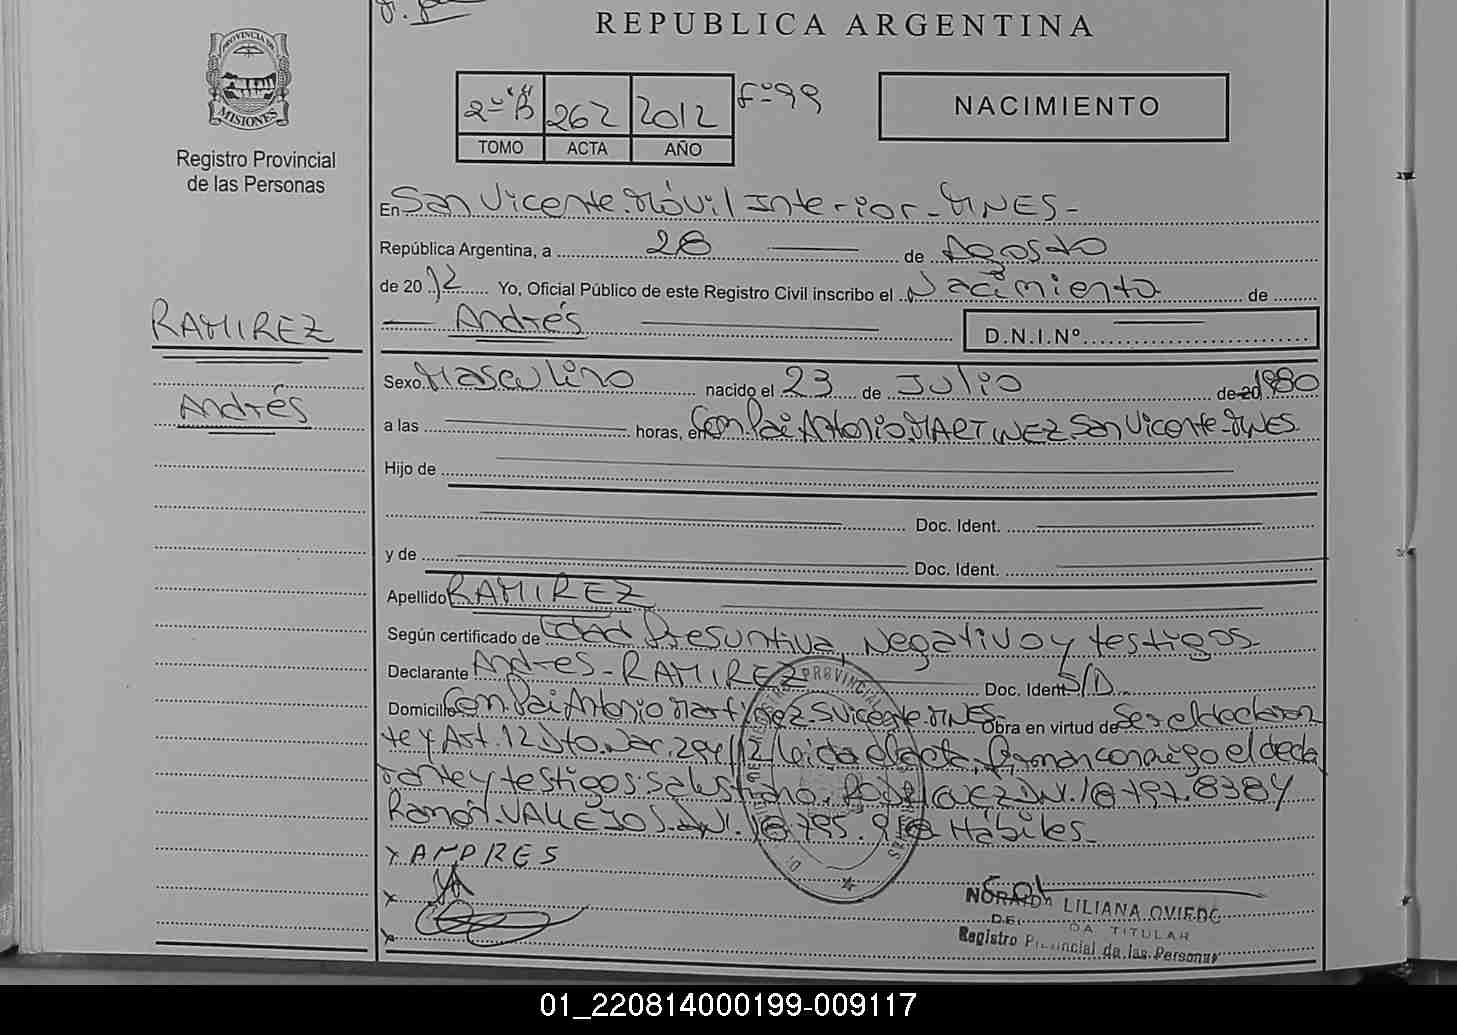 REPUBLICA ARGENTINA
PROVINCIA DE
MISIONES
Registro Provincial
de las Personas
2º "B" 262 2012 Fº 99
TOMO ACTA AÑO
NACIMIENTO
En San Vicente. Móvil Interior - MNES -
República Argentina, a 28 de Agosto
de 2012 Yo, Oficial Público de este Registro Civil inscribo el Nacimiento de
Andrés D.N.I.Nº
RAMIREZ
Andrés
Sexo Masculino nacido el 23 de Julio de 20 1980
a las horas, en Com Pai Antonio MARTINEZ San Vicente - MNES
Hijo de
Doc. Ident.
y de Doc. Ident.
Apellido RAMIREZ
Según certificado de Edad Presuntiva, Negativo y testigos -
Declarante Andres - RAMIREZ Doc. Ident S/D
Domicilio Com Pai Antonio Martinez S Vicente - MNES - Obra en virtud de Ser el declaran
te y Art. 12 Dto. Nac. 294/12 leida el acta, firman conmigo el decla
rante y testigos: Salustiano. RODRIGUEZ DNI. 18.797.838 y
Ramón. VALLEJOS. DNI. 18.795. Hábiles -
x ANDRES
x
x
LILIANA OVIEDO
DA TITULAR
Registro Provincial de las Personas
01_220814000199-009117